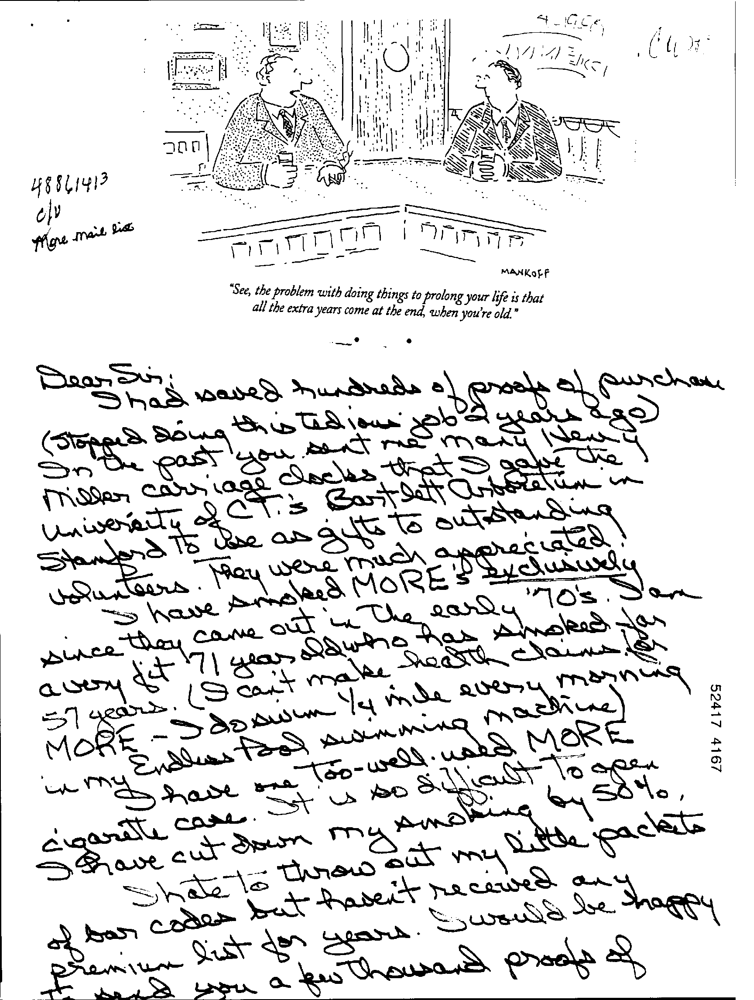 48861413
c/u
More mail list
MANKOFF
"See, the problem with doing things to prolong your life is that
all the extra years come at the end, when you're old."
Dear Sir:
I had saved hundreds of proofs of purchase
(stopped doing this tedious job 2 years ago)
In the past you sent me many Henry
Miller carriage clocks that I gave the
University of CT.'s Bartlett Arboretum in
Stamford to use as gifts to outstanding
volunteers. They were much appreciated.
I have smoked MORE's exclusively
since they came out in the early '70's. I am
a very fit 71 year old who has smoked for
57 years. (I can't make health claims for
MORE - I do swim 1/4 mile every morning
in my Endless Pool swimming machine)
I have one too-well-used MORE
cigarette case. It is so difficult to open
I have cut down my smoking by 50%.
I hate to throw out my little packets
of bar codes but haven't received any
premium list for years. I would be happy
to send you a few thousand proofs of
52417 4167